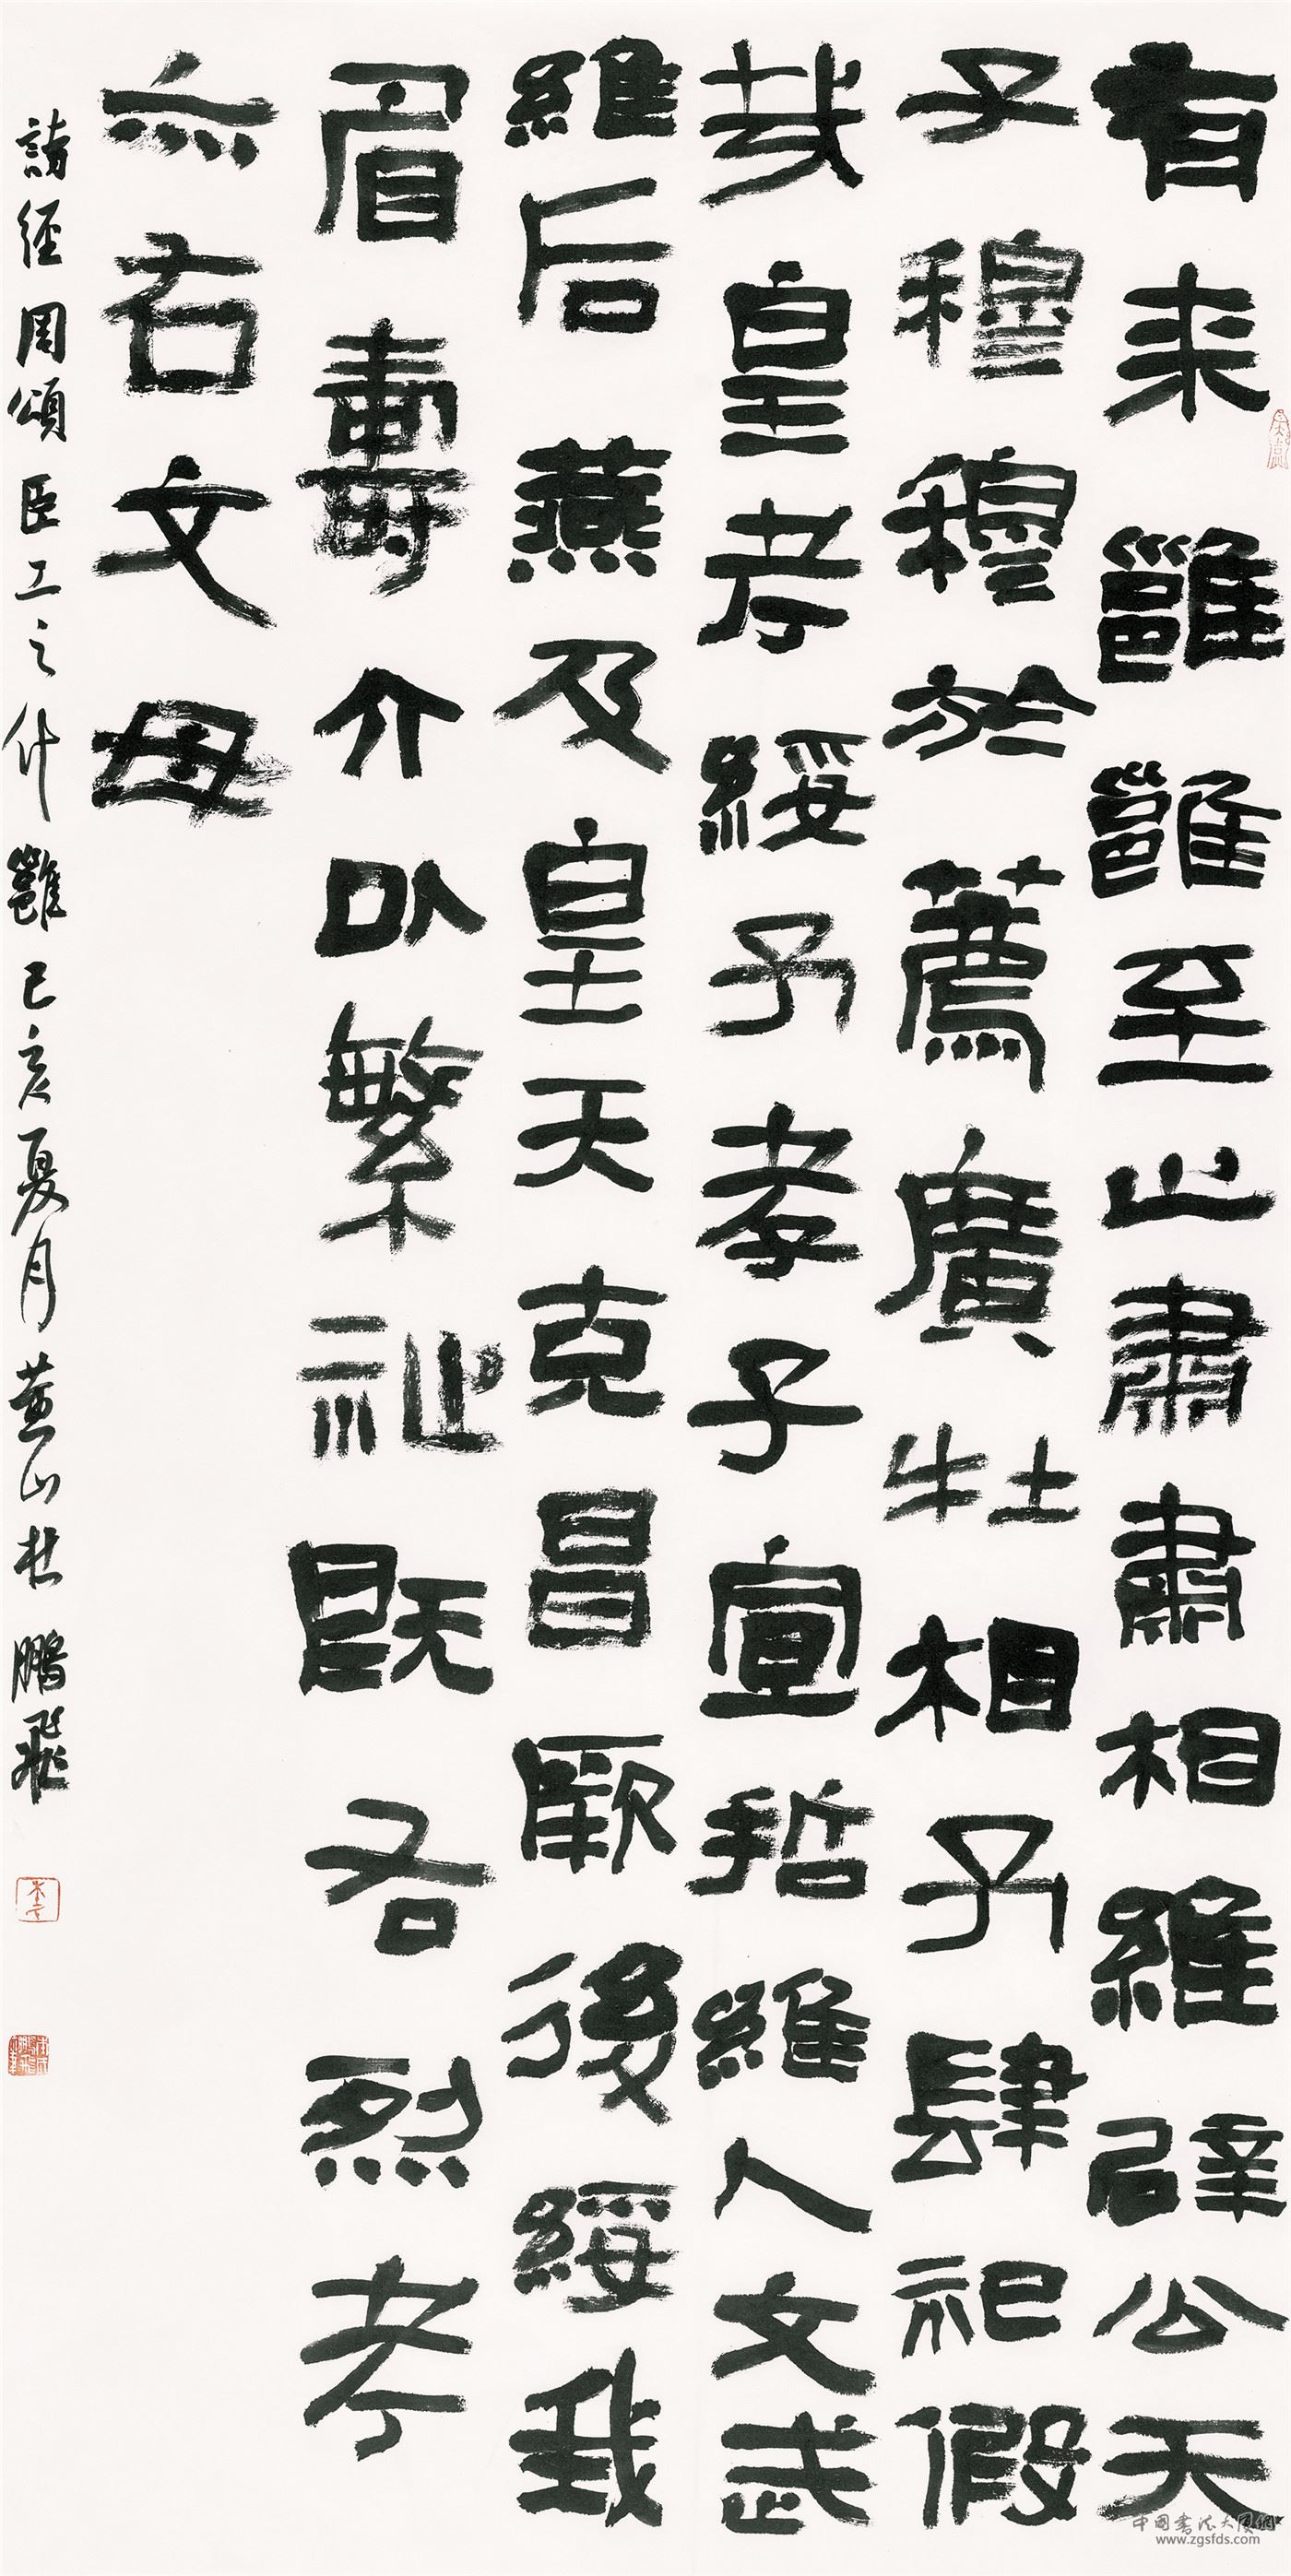 有来雝雝至止肅肅相維辟公天
子穆穆於薦廣牡相予肆祀假
哉皇考綏予孝子宣哲維人文武
維后燕及皇天克昌厥後綏我
眉壽介以繁祉既右烈考
亦右文母
詩經周頌臣工之什雝己亥夏月黄山杜鵬飛
中國書法大厦網
www.zgsfds.com